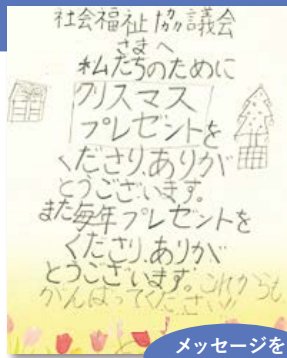 社会福祉協議会
さまへ
私たちのために
クリスマス
プレゼントを
くださり、ありが
とうございます。
また毎年プレゼントを
くださり、ありが
とうございます。これからも
がんばってください!!
メッセージを